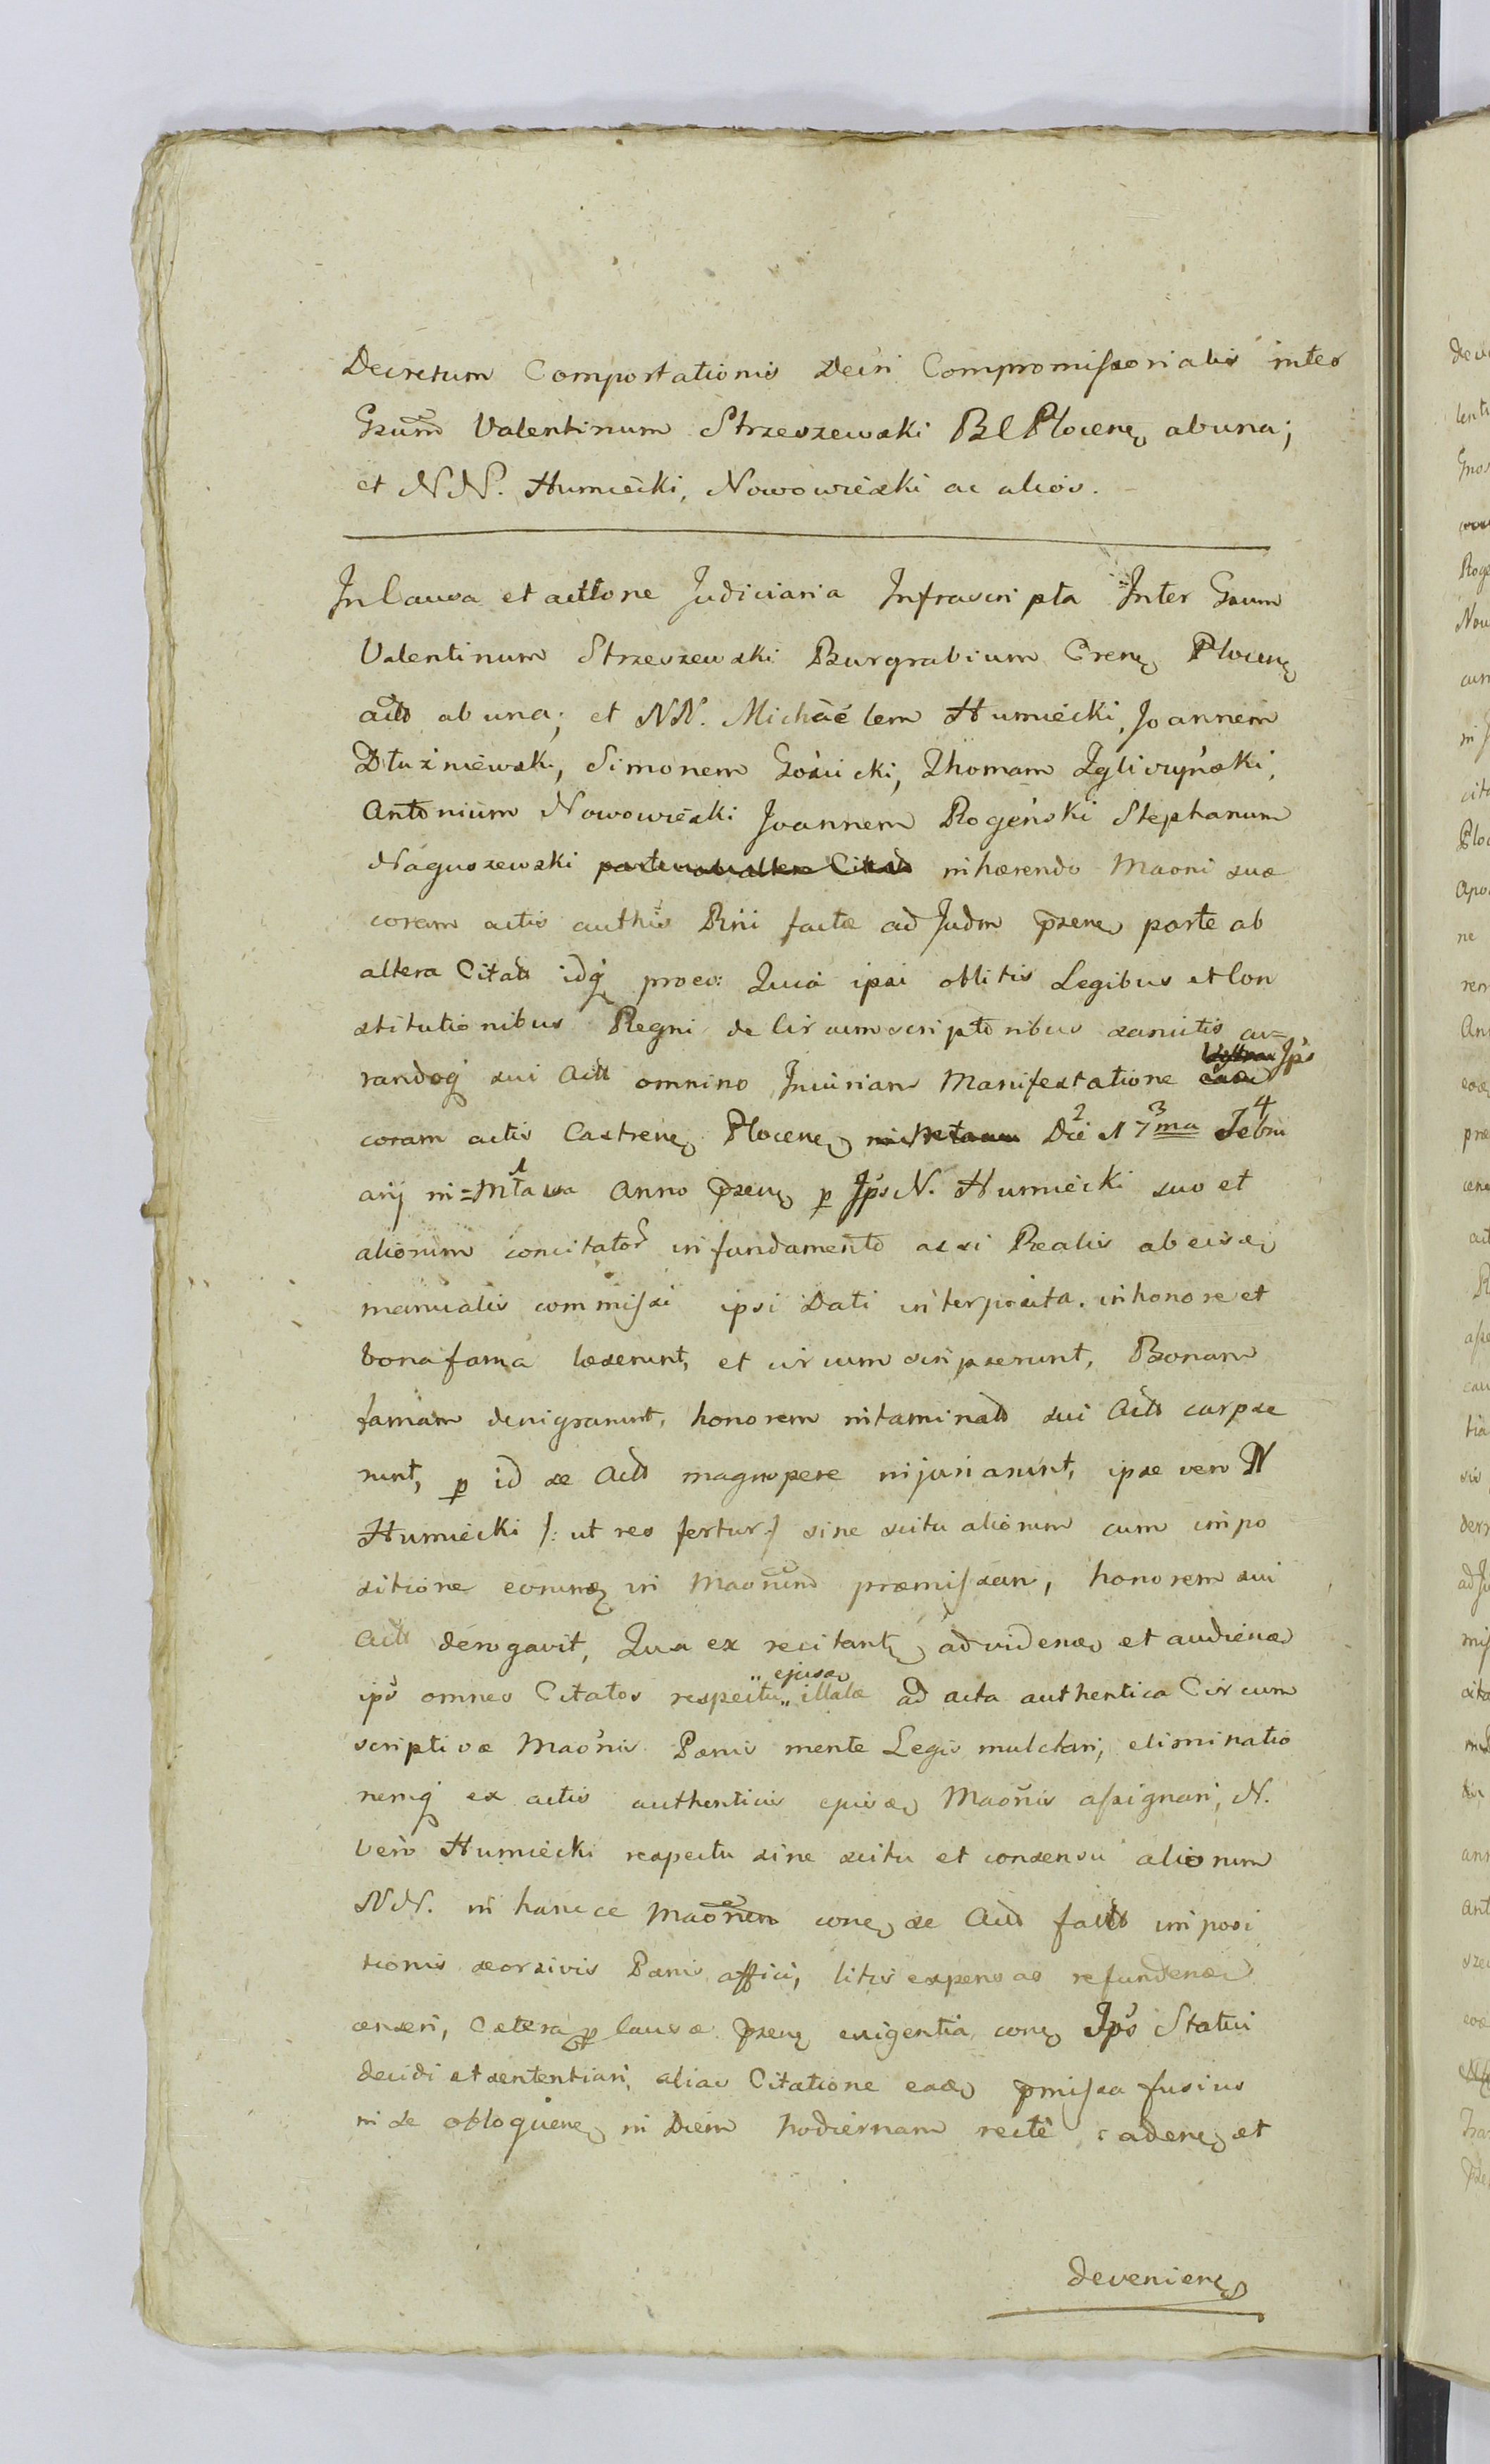 Decretum Comportationis Decri Compromissorialis inter
Gsum Valentinum Strzeszewski B C Plocen, ab una;
et NN. Humiecki, Nowowieski ac alios.
In Causa et actione Judiciaria Infrascripta Inter Gsum
Valentinum Strzeszewski Burgrabium Cren, Plocen,
acto ab una; et NN. Michaelem Humiecki, Joannem
Dłużniewski, Simonem Gosicki, Thomam Zgliczyński,
Antonium Nowowieski Joannem Rogeński Stephanum
Naguszewski inhærendo Maoni suæ
coram actis authis Rni factæ ad Judm pzen, parte ab
altera Citats idq, proeo: Quia ipsi oblitis Legibus et Con
stitutionibus Regni de Circumscriptoribus sancitis cu=
randoq sui Acti omnino Injuriam Manifestatione Ips
coram actis Castren, Plocen, Die 2 17ma 3 Febru 4
arij in=Mława 1 Anno pzen, p Ips N. Humiecki suo et
aliorum concitator in fundamento assi Realis ab eisd,
manualis commissi ipsi Dati interposita. in honore et
bona fama læserunt, et circumscripserunt, Bonam
famam denigrarunt, honorem intaminats sui Acts carpse
runt, p id se Acts magnopere injuriarunt, ipse vero N
Humiecki /: ut res fertur :/ sine scitu aliorum cum impo
sitione eorumd, in Maonem præmissam, honorem sui
Acts derogavit, Qua ex recitant, ad vidend, et audiend,
ips omnes Citatos respectu „ ejusd, „ illatæ ad acta authentica Circum
scriptivæ Maonis Pænis mente Legis mulctari, eliminatio
nemq ex actis authenticis ejusd, Maonis assignari, N.
vero Humiecki respectu sine scitu et consensu aliorum
NN. in hancce Maonem con, se Acts facts imposi
tionis seorsivis Pænis affici, litis expensas refundend,
censeri, Cætera p Causæ pzen, exigentia con, Ips Statui
decidi et sententiari, alias Citatione ead, pmissa fusius
in se obloquen, in Diem hodiernam recte caden, et
devenien,